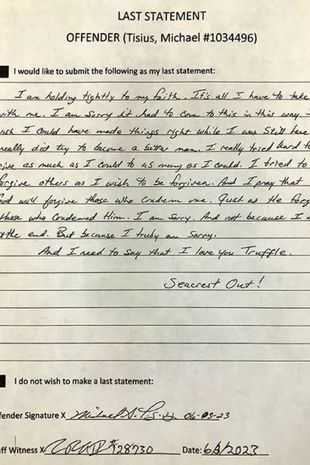 LAST STATEMENT
OFFENDER (Tisius, Michael #1034496)
I would like to submit the following as my last statement:
I am holding tightly to my faith. It's all I have to take
with me. I am sorry it had to come to this in this way
ish I could have made things right while I was still here
really did try to become a better man. I really tried hard to
give as much as I could to as many as I could. I tried to
forgive others as I wish to be forgiven. And I pray that
God will forgive those who condemn me. Just as He forgave
those who condemned Him. I am sorry. And not because I a
the end. But because I truly am sorry.
And I need to say that I love you Truffle.
Seacrest Out!
I do not wish to make a last statement:
fender Signature X 06-05-23
aff Witness X 28730 Date: 6/5/2023